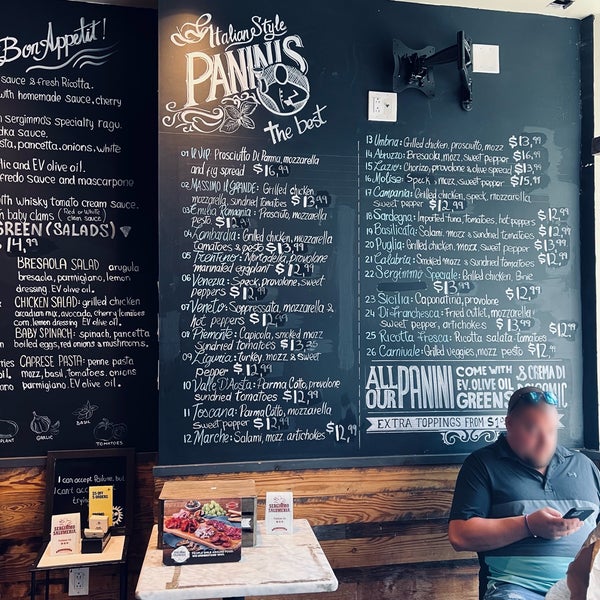 Bon Appetit!
sauce & fresh Ricotta.
with homemade sauce, cherry
sergimmo's specialty ragu.
dka sauce.
sta, pancetta, onions, white
lic and EV olive oil.
fredo sauce and mascarpone
with whisky tomato cream sauce.
baby clams (Red or White clam sauce)
GREEN (SALADS)
14,99
BRESAOLA SALAD arugula
bresaola, parmigiano, lemon
dressing, EV olive oil.
CHICKEN SALAD: grilled chicken
arcadian mix, avocado, cherry tomatoes
corn, lemon dressing EV olive oil.
BABY SPINACH: spinach, pancetta
boiled eggs, red onions & mushrooms.
CAPRESE PASTA: penne pasta
mozz, basil, tomatoes, onions
parmigiano, EV olive oil.
GARLIC
BASIL
TOMATOES
I can accept failure, but
I can't accept
Italian Style
PANINIS
the best
01 Le VIP: Prosciutto Di Parma, mozzarella
and fig spread $16,99
02 MASSIMO IL GRANDE: Grilled
chicken, mozzarella, sundried Tomatoes $13,99
03 Emilia Romagna: Prosciuto, mozzarella
pesto $12,99
04 Lombardia: Grilled chicken, mozzarella
tomatoes, & pesto $13,99
05 Trentino: Mortadella, provolone
marinated eggplant $12,99
06 Venezia: Speck, provolone, sweet
peppers $12,99
07 Veneto: Soppressata, mozzarella &
hot peppers $12,99
08 Piemonte: Capicola, smoked mozz
sundried Tomatoes $13,25
09 Liguria: Turkey, mozz, & sweet
pepper $13,99
10 Valle D'Aosta: Parma Cotto, provolone
sundried Tomatoes $12,99
11 Toscana: Parma Cotto, mozzarella
Sweet pepper $12,99
12 Marche: Salami, mozz, artichokes $12,99
13 Umbria: Grilled chicken, prosciutto, mozz $13,99
14 Abruzzo: Bresaola, mozz, sweet pepper $16,99
15 Lazio: Chorizo, provolone & olive spread $13,99
16 Molise: Speck, mozz, pesto $15,99
17 Campania: Grilled chicken, speck, mozzarella
sweet pepper $12,99
18 Sardegna: Imported tuna, tomatoes, hot peppers $12,99
19 Basilicata: Salami, mozz & Sundried tomatoes $12,99
20 Puglia: Grilled chicken, mozz, sweet pepper $13,99
21 Calabria: Smoked mozz & Sundried Tomatoes $12,99
22 Sergimmo Speciale: Grilled chicken, Brie
$13,99
23 Sicilia: Caponatina, provolone $12,99
24 Di-Francesca: Fried cutlet, mozzarella
sweet pepper, artichokes $13,99
25 Ricotta Fresca: Ricotta salata, tomatoes $12,99
26 Carnivale: Grilled veggies, mozz, pesto $12,99
ALL OUR PANINI COME WITH EV. OLIVE OIL GREENS & CREMA DI
EXTRA TOPPINGS FROM $1
SERGIMMO
SALUMERIA
SERGIMMO
SALUMERIA